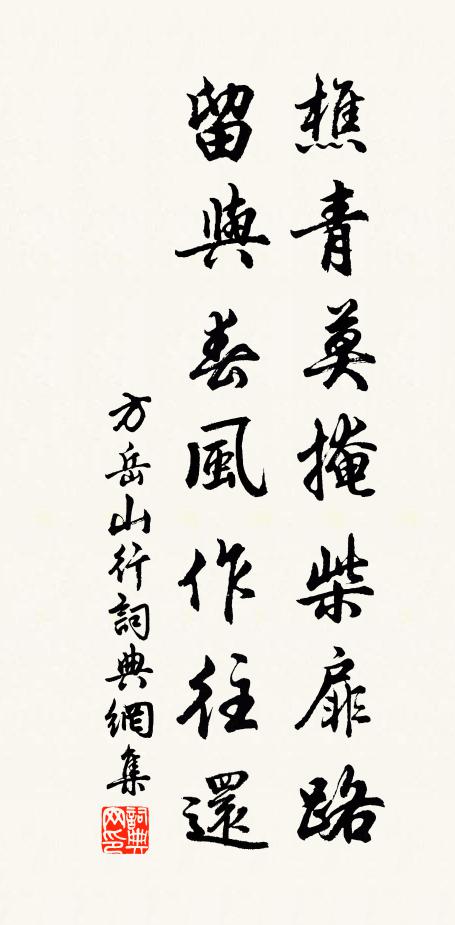 樵青莫掩柴扉路
留與春風作往還
方岳山行詞典網集
詞典
网印